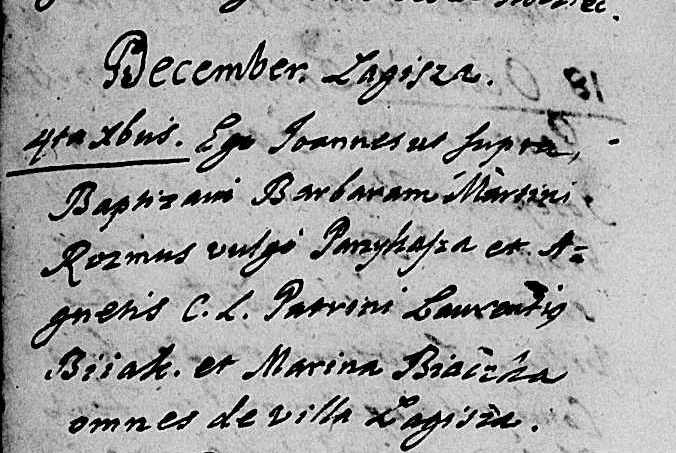 December. Lagisza.
4ta Xbris. Ego Joannes ut supra,
Baptizavi Barbaram Martini
Rozmus vulgo et A=
gnetis C. L. Patrini Laurentiq
Biiak. et Marina
omnes de villa Lagisza.